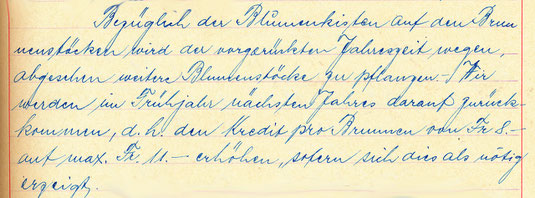 Bezüglich der Blumenkisten auf den Brun
nenstöcken wird der vorgerückten Jahreszeit wegen,
abgesehen weitere Blumenstöcke zu pflanzen. – Wir
werden im Frühjahr nächsten Jahres darauf zurück-
kommen, d.h. den Kredit pro Brunnen von Fr 8.–
auf max. Fr. 11.– erhöhen, sofern sich dies als nötig
erzeigt.